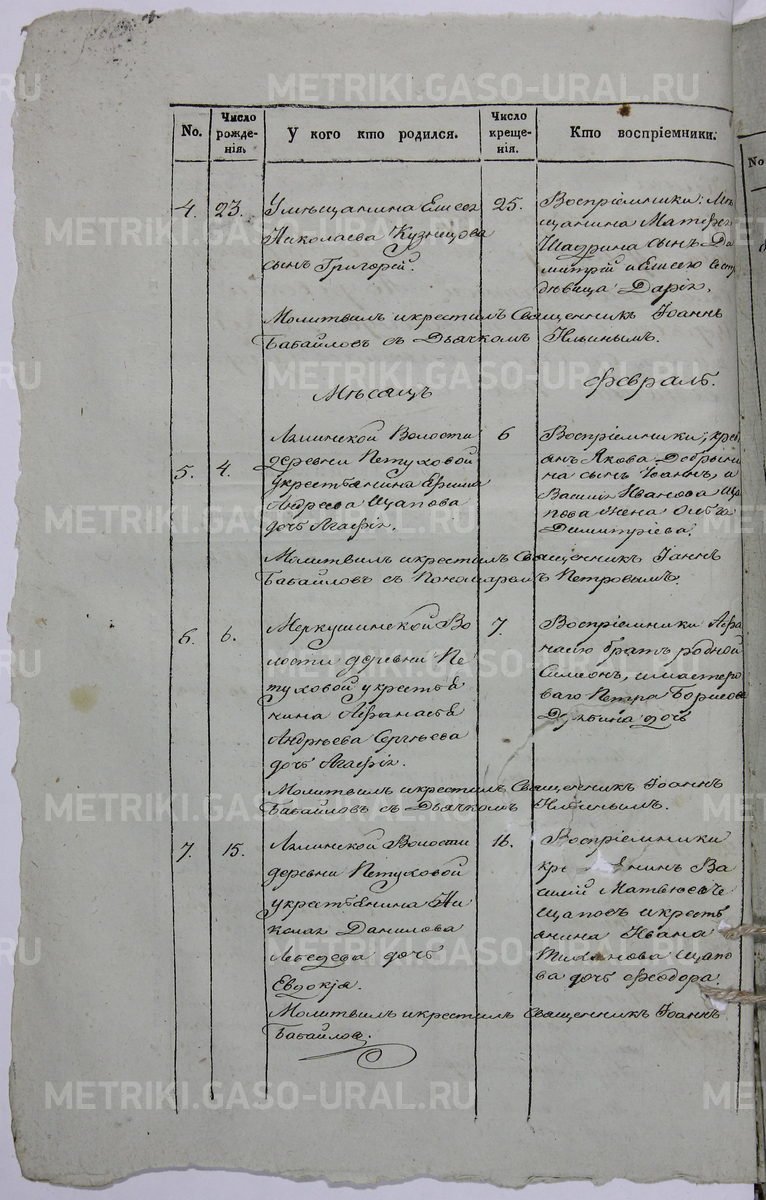 No.
Число рожденія.
У кого кто родился.
Число крещенія.
Кто воспріемники.
4.
23.
У мѣщанина Елисея
Николаева Кузнецова
сынъ Григорій.
25.
Воспріемники: Мѣ
щанина Матфея
Шадрина сынъ Ди
митрій и Елисею сестра
дѣвица Дарія.
Молитвилъ и крестилъ Священникъ Іоаннъ
Бабайловъ съ Дьячкомъ Ильинымъ.
Мѣсяцъ
Февраль.
5.
4.
Волости
деревни Петуховой
у крестьянина Ефима
Андреева Щапова
дочь Агафія.
6
Воспріемники; крес
янъ Якова Добрыни
на сынъ Іоаннъ, и
Василія Иванова Ща
пова жена Ольга
Димитріева.
Молитвилъ и крестилъ Священникъ Іоаннъ
Бабайловъ съ Пономаремъ Петровымъ.
6.
6.
Меркушинской Во
лости деревни Пе
туховой у крестья
нина Афанасья
Андрѣева Сергѣева
дочь Агафія.
7.
Воспріемники Афа
насію братъ родной
Симеонъ, и мастеро
ваго Петра Борисова
дочь
Молитвилъ и крестилъ Священникъ Іоаннъ
Бабайловъ съ Дьячкомъ Ильинымъ.
7.
15.
Волости
деревни Петуховой
у крестьянина Ни
колая Данилова
Лебедева дочь
Евдокія.
16.
Воспріемники
Ва
силій Матвѣевъ
Щаповъ и кресть
янина Ивана
Щапо
ва дочь Феодора.
Молитвилъ и крестилъ Священникъ Іоаннъ
Бабайловъ.
No
METRIKI.GASO-URAL.RU